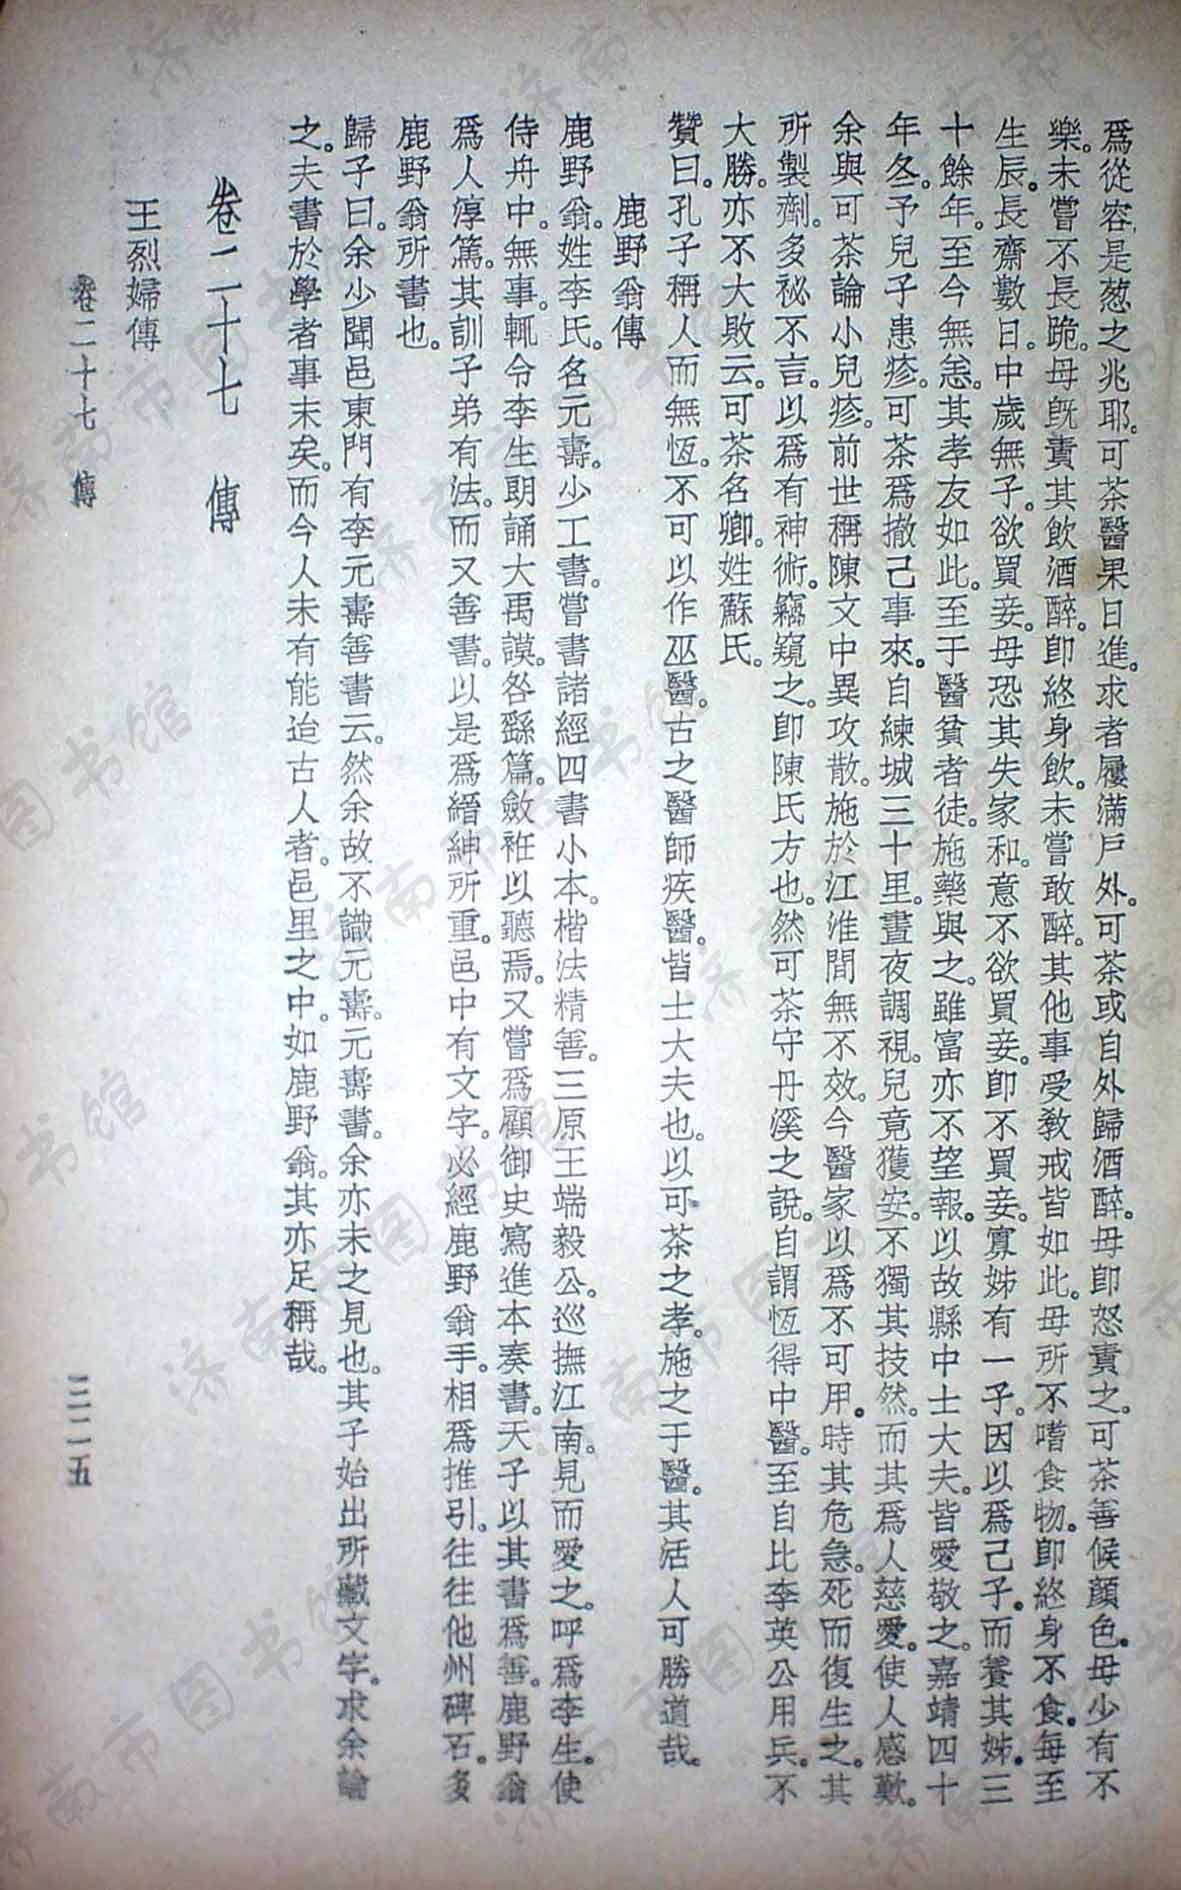 爲從容是葱之兆耶。可茶醫果日進。求者屨滿戶外。可茶或自外歸酒醉。母卽怒責之。可茶善候顏色。母少有不
樂。未嘗不長跪。母旣責其飲酒醉。卽終身飲。未嘗敢醉。其他事受敎戒皆如此。母所不嗜食物。卽終身不食。每至
生辰。長齋數日。中歲無子。欲買妾。母恐其失家和。意不欲買妾。卽不買妾。寡姊有一子。因以爲己子。而養其姊。三
十餘年。至今無恙。其孝友如此。至于醫貧者徒。施藥與之。雖富亦不望報。以故縣中士大夫。皆愛敬之。嘉靖四十
年冬。予兒子患疹。可茶爲撤己事來。自練城三十里。晝夜調視。兒竟獲安。不獨其技然。而其爲人慈愛。使人感歎。
余與可茶論小兒疹。前世稱陳文中異攻散。施於江淮間無不效。今醫家以爲不可用。時其危急。死而復生之。其
所製劑。多祕不言。以爲有神術。竊窺之。卽陳氏方也。然可茶守丹溪之說。自謂恆得中醫。至自比李英公用兵。不
大勝。亦不大敗云。可茶名卿。姓蘇氏。
贊曰。孔子稱人而無恆。不可以作巫醫。古之醫師疾醫。皆士大夫也。以可茶之孝。施之于醫。其活人可勝道哉。
鹿野翁傳
鹿野翁。姓李氏。名元壽。少工書。嘗書諸經四書小本。楷法精善。三原王端毅公。巡撫江南。見而愛之。呼爲李生。使
侍舟中。無事。輒令李生朗誦大禹謨。咎繇篇。斂袵以聽焉。又嘗爲顧御史寫進本奏書。天子以其書爲善。鹿野翁
爲人淳篤。其訓子弟有法。而又善書。以是爲縉紳所重。邑中有文字。必經鹿野翁手。相爲推引。往往他州碑石。多
鹿野翁所書也。
歸子曰。余少聞邑東門有李元壽善書云。然余故不識元壽。元壽書。余亦未之見也。其子始出所藏文字。求余論
之。夫書於學者事末矣。而今人未有能迨古人者。邑里之中。如鹿野翁。其亦足稱哉。
卷二十七　傳
王烈婦傳
卷二十七　傳
三二五
济南市图书馆